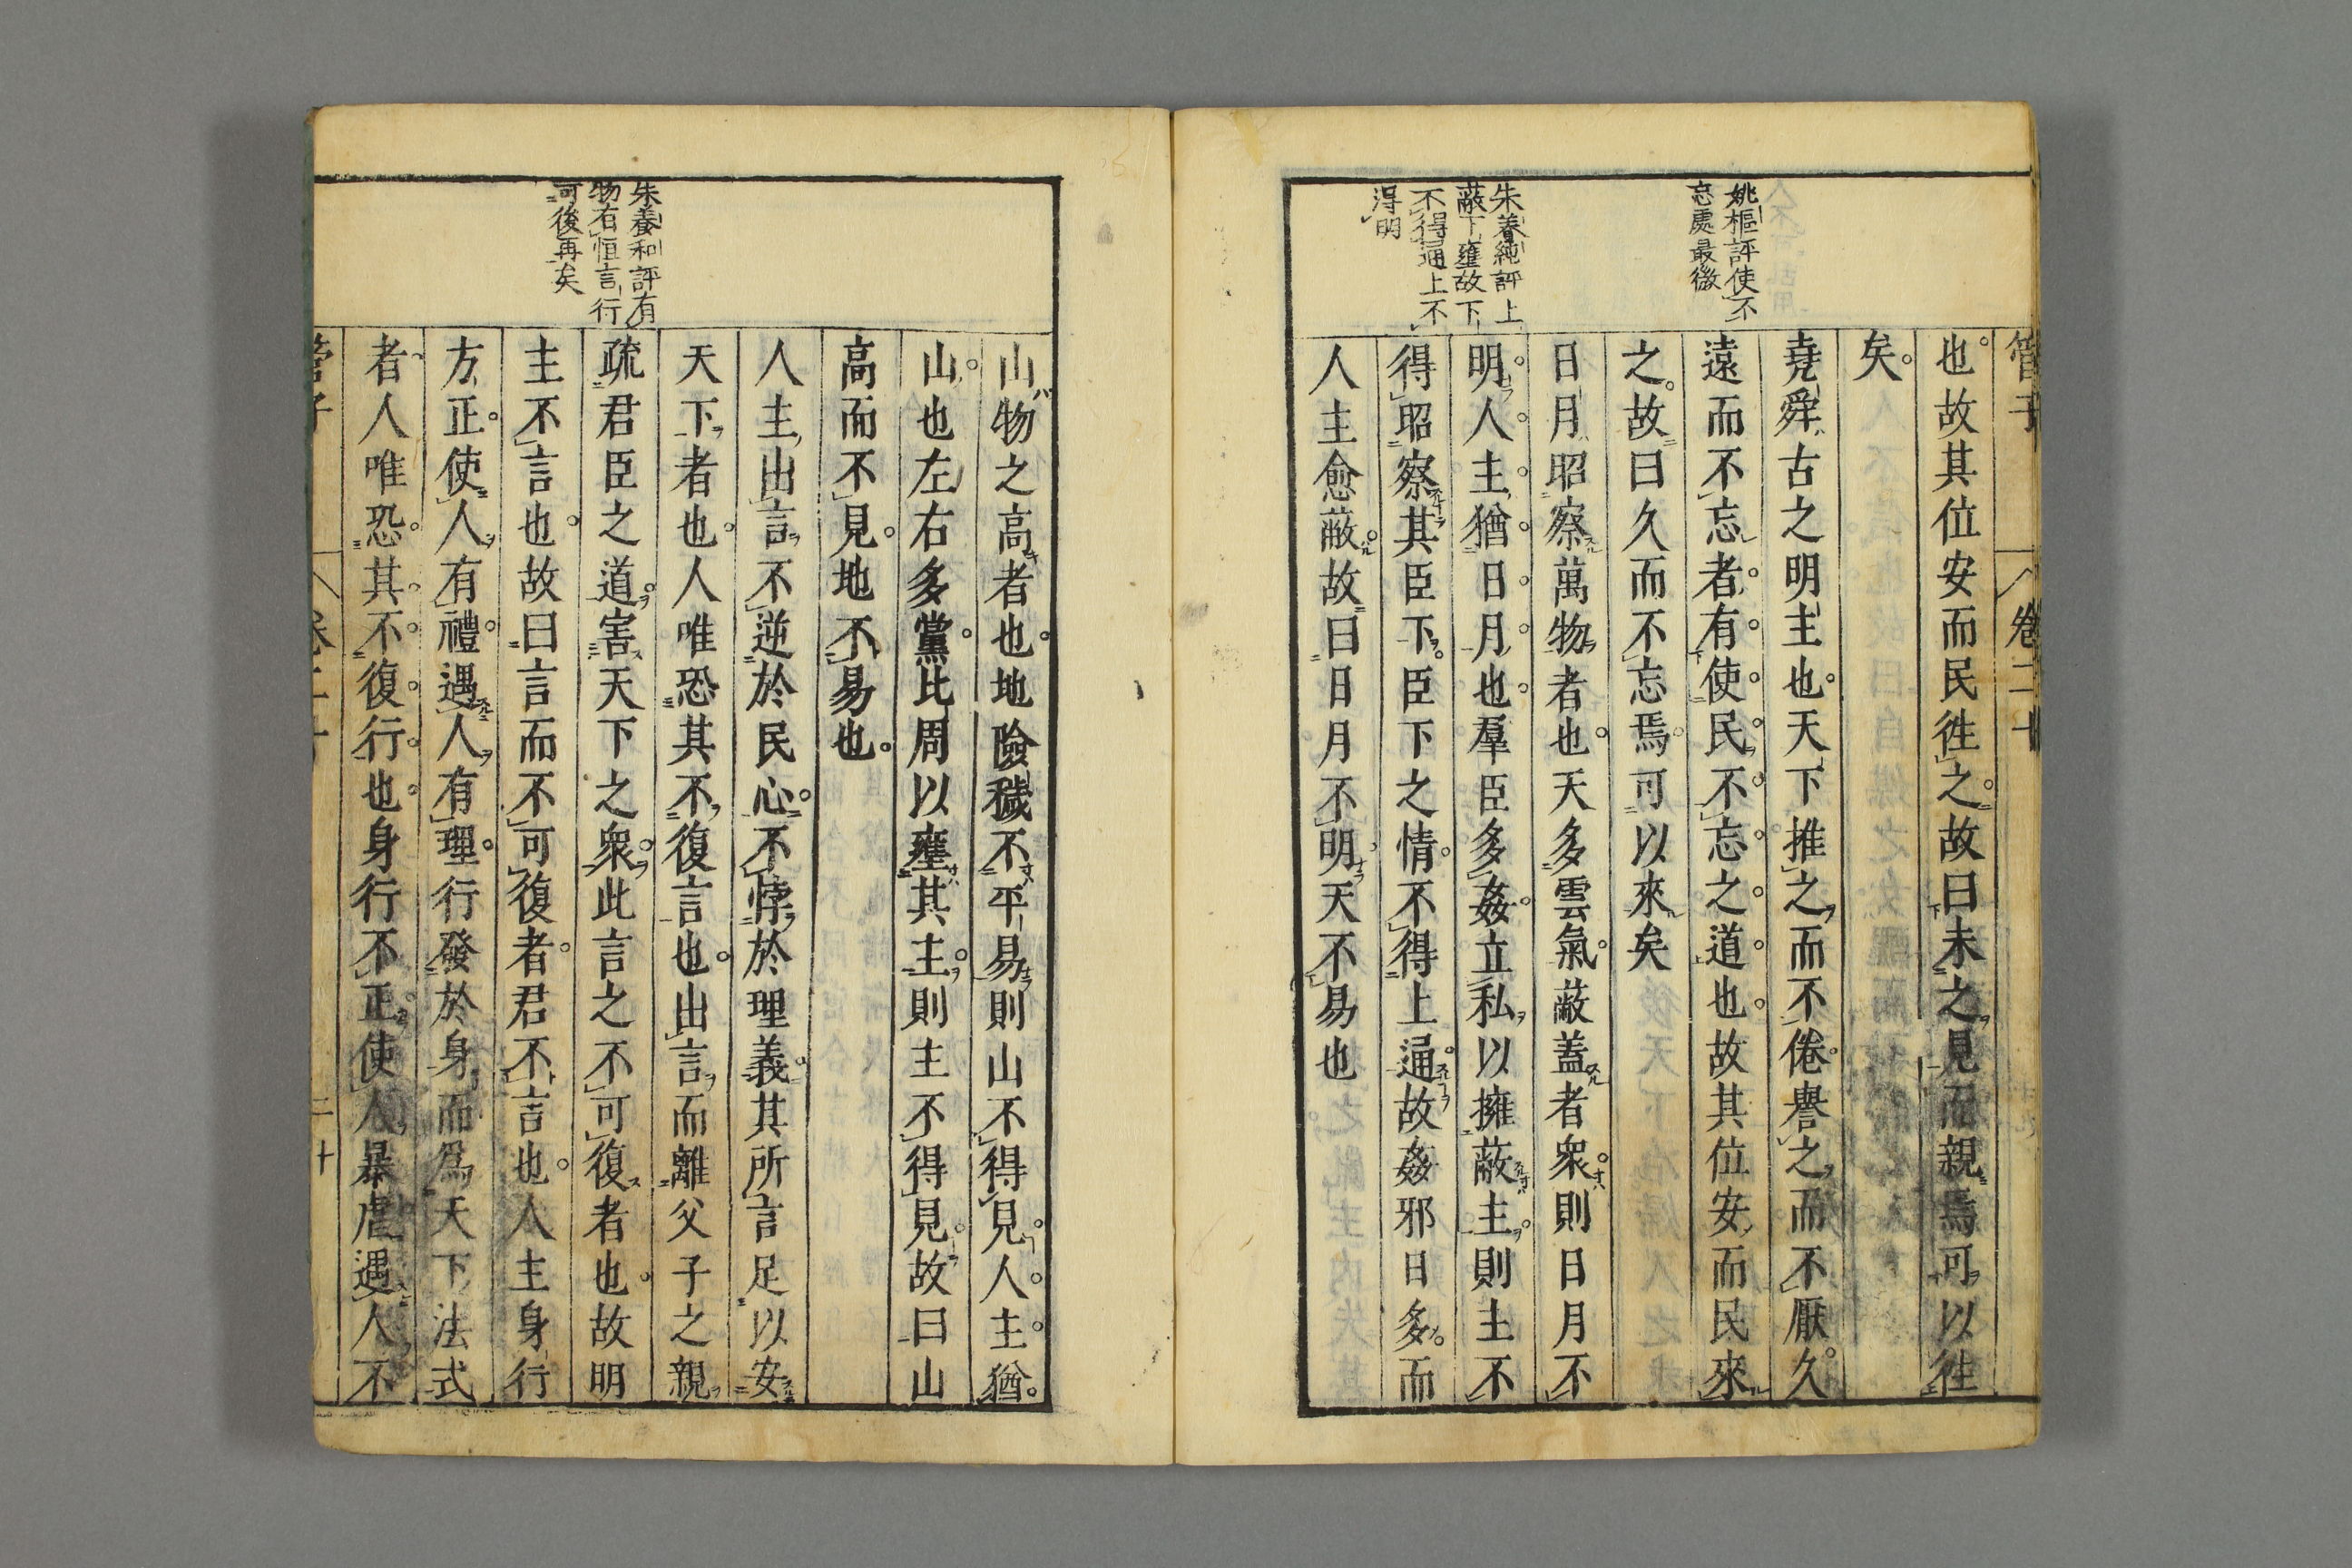 管子
卷二十
姚樞評使不
忘處最微
朱養純評上
蔽下壅故下
不得通上不
得明
也故其位安而民徃之故曰未之見而親焉可以徃
矣
堯舜古之明主也天下推之而不倦譽之而不厭久
遠而不忘者有使民不忘之道也故其位安而民來
之故曰久而不忘焉可以來矣
日月昭察萬物者也天多雲氣蔽蓋者衆則日月不
明人主猶日月也羣臣多姦立私以擁蔽主則主不
得昭察其臣下臣下之情不得上通故姦邪日多而
人主愈蔽故曰日月不明天不易也
朱養和評有
物有恒言行
可後再矣
山物之高者也地險穢不平易則山不得見人主猶
山也左右多黨比周以壅其主則主不得見故曰山
高而不見地不易也
人主出言不逆於民心不悖於理義其所言足以安
天下者也人唯恐其不復言也出言而離父子之親
疏君臣之道害天下之衆此言之不可復者也故明
主不言也故曰言而不可復者君不言也人主身行
方正使人有禮遇人有理行發於身而爲天下法式
者人唯恐其不復行也身行不正使人暴虐遇人不
管子
卷二十
二十